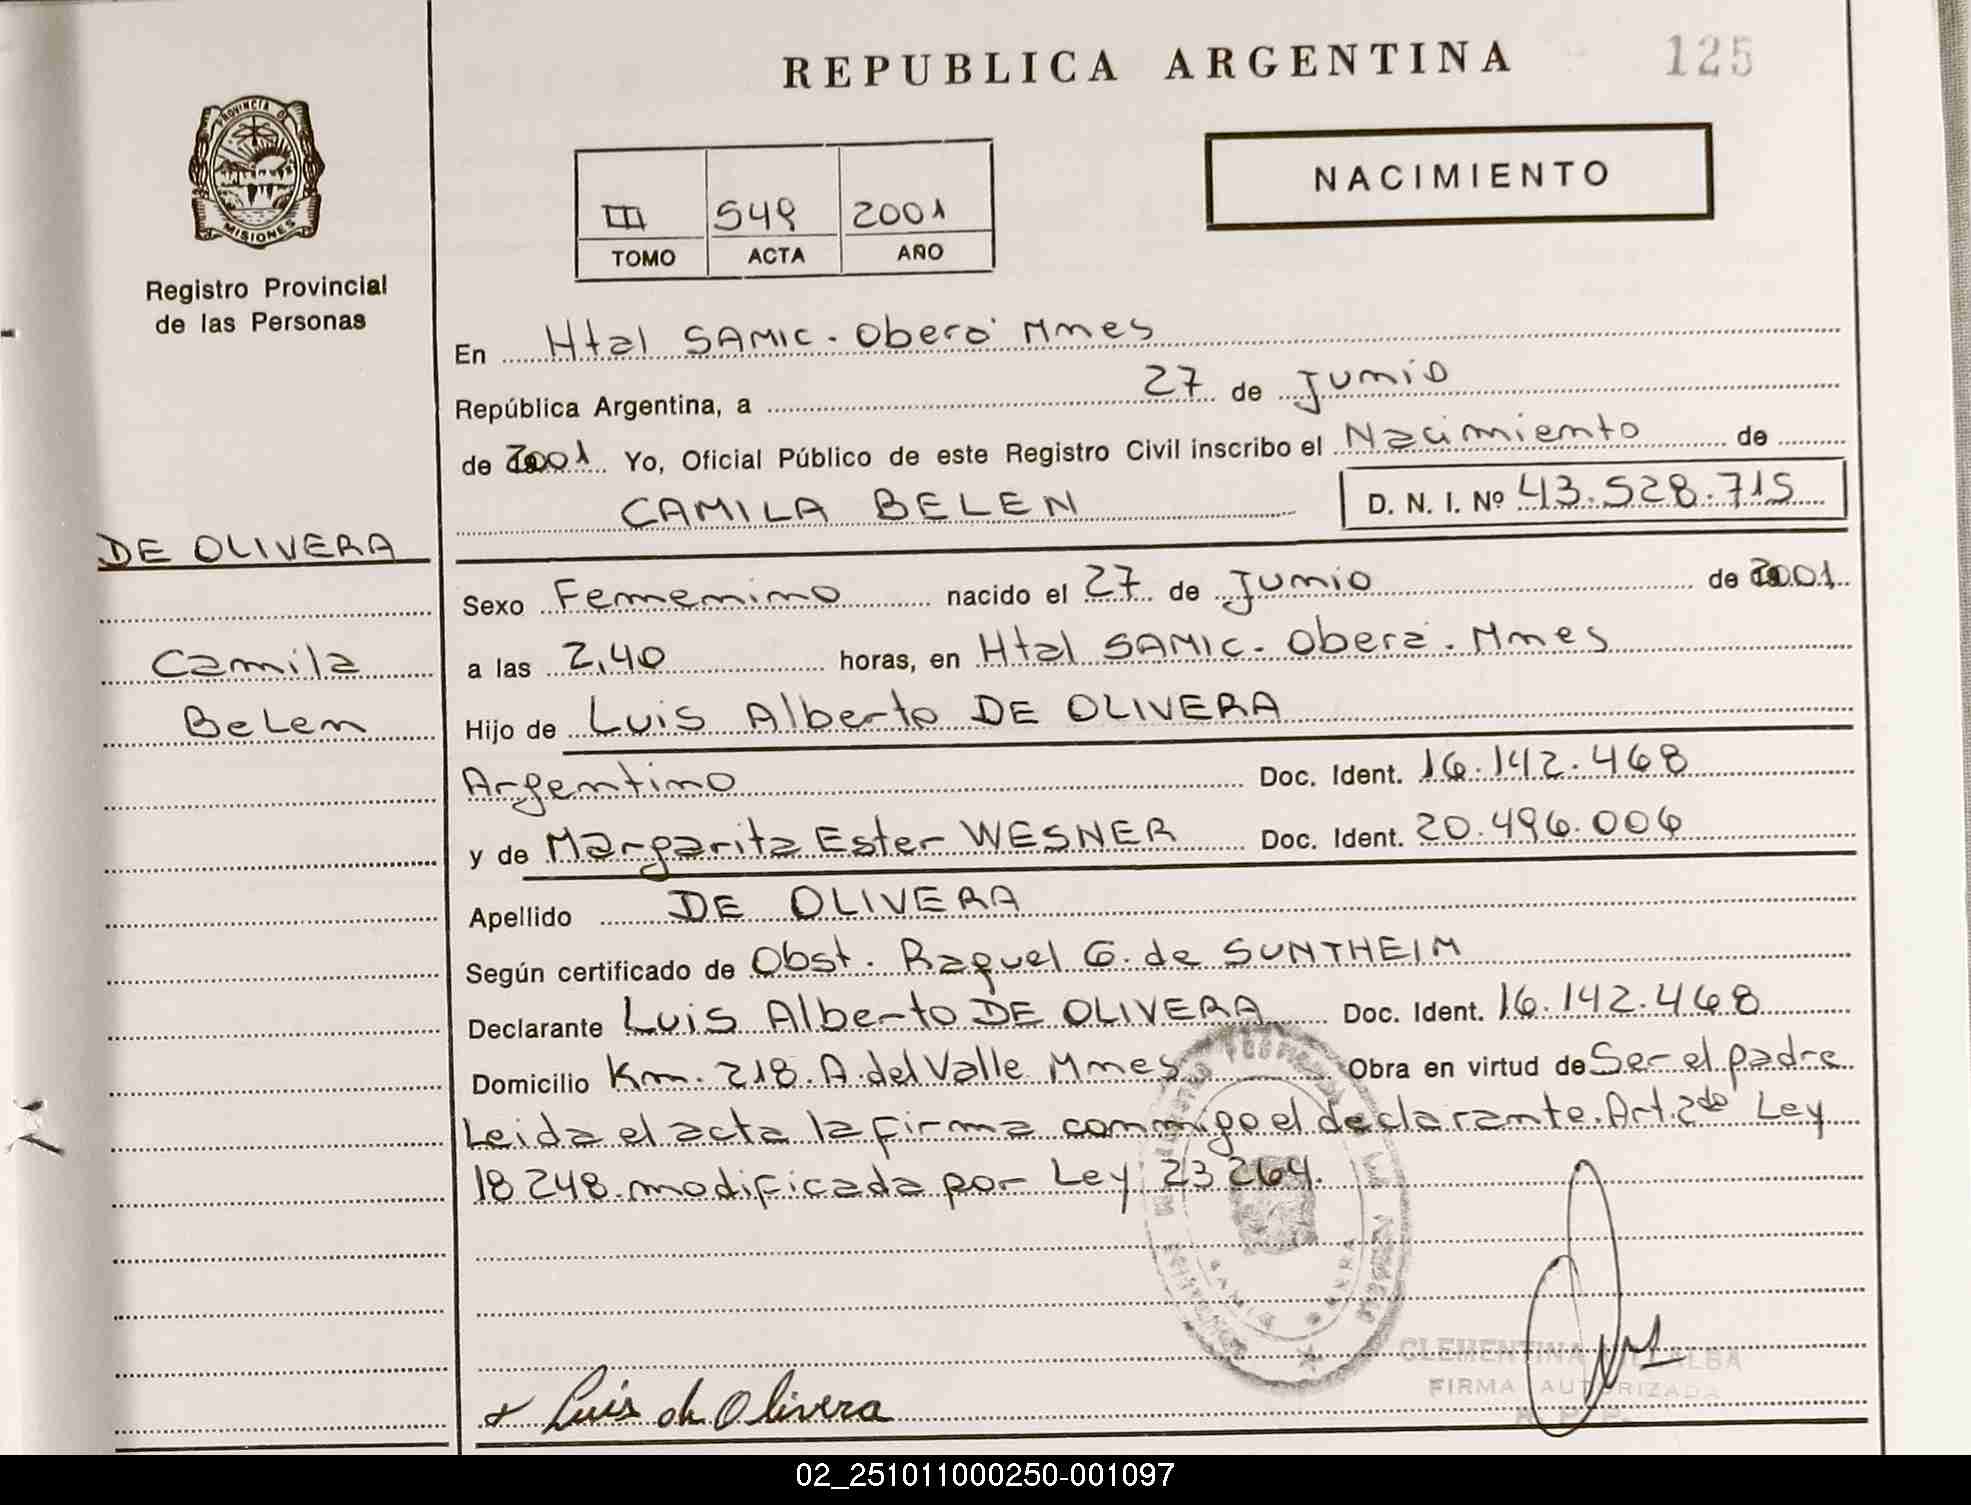 REPUBLICA ARGENTINA
125
PROVINCIA DE
MISIONES
Registro Provincial
de las Personas
III 549 2001
TOMO ACTA AÑO
NACIMIENTO
En Htal SAMIC. Oberá Mnes
República Argentina, a 27 de Junio
de 2001 Yo, Oficial Público de este Registro Civil inscribo el Nacimiento de
CAMILA BELEN D. N. I. Nº 43.528.715
DE OLIVERA
Camila
Belen
Sexo Femenino nacido el 27 de Junio de 2001
a las 2,40 horas, en Htal SAMIC. Oberá. Mnes
Hijo de Luis Alberto DE OLIVERA
Argentino Doc. Ident. 16.142.468
y de Margarita Ester WESNER Doc. Ident. 20.496.006
Apellido DE OLIVERA
Según certificado de Obst. Raquel G. de SUNTHEIM
Declarante Luis Alberto DE OLIVERA Doc. Ident. 16.142.468
Domicilio Km. 218. A. del Valle Mnes Obra en virtud de Ser el padre
Leida el acta la firma conmigo el declarante. Art. 2do Ley
18248 modificada por Ley 23264.
CLEMENTINA
FIRMA AUTORIZADA
Luis de Olivera
02_251011000250-001097